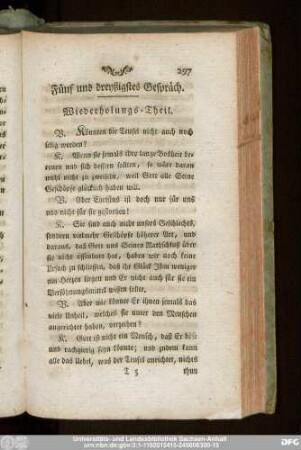 297
Fünf und dreyßigstes Gespräch.
Wiederholungs-Theil.
V. Könnten die Teufel nicht auch noch
selig werden?
K. Wenn sie jemals ihre lange Bosheit be-
reuen und sich bessern sollten, so wäre daran
nicht zu zweifeln, weil Gott alle Seine
Geschöpfe glücklich haben will.
V. Aber Christus ist doch nur für uns
und nicht für sie gestorben!
K. Sie sind auch nicht unsers Geschlechts,
sondern vielmehr Geschöpfe höherer Art, und
daraus, daß Gott uns Seinen Rathschluß über
sie nicht offenbart hat, haben wir noch keine
Ursach zu schließen, daß ihr Glück Ihm weniger
am Herzen liege und Er nicht auch für sie ein
Versöhnungsmittel wissen sollte.
V. Aber wie könnte Er ihnen jemals das
viele Unheil, welches sie unter den Menschen
angerichtet haben, verzeihen?
K. Gott ist nicht ein Mensch, daß Er böse
und rachgierig seyn könnte; und zudem kann
alle das Uebel, was der Teufel anrichtet, nichts
T 5 thun
Universitäts- und Landesbibliothek Sachsen-Anhalt
DFG